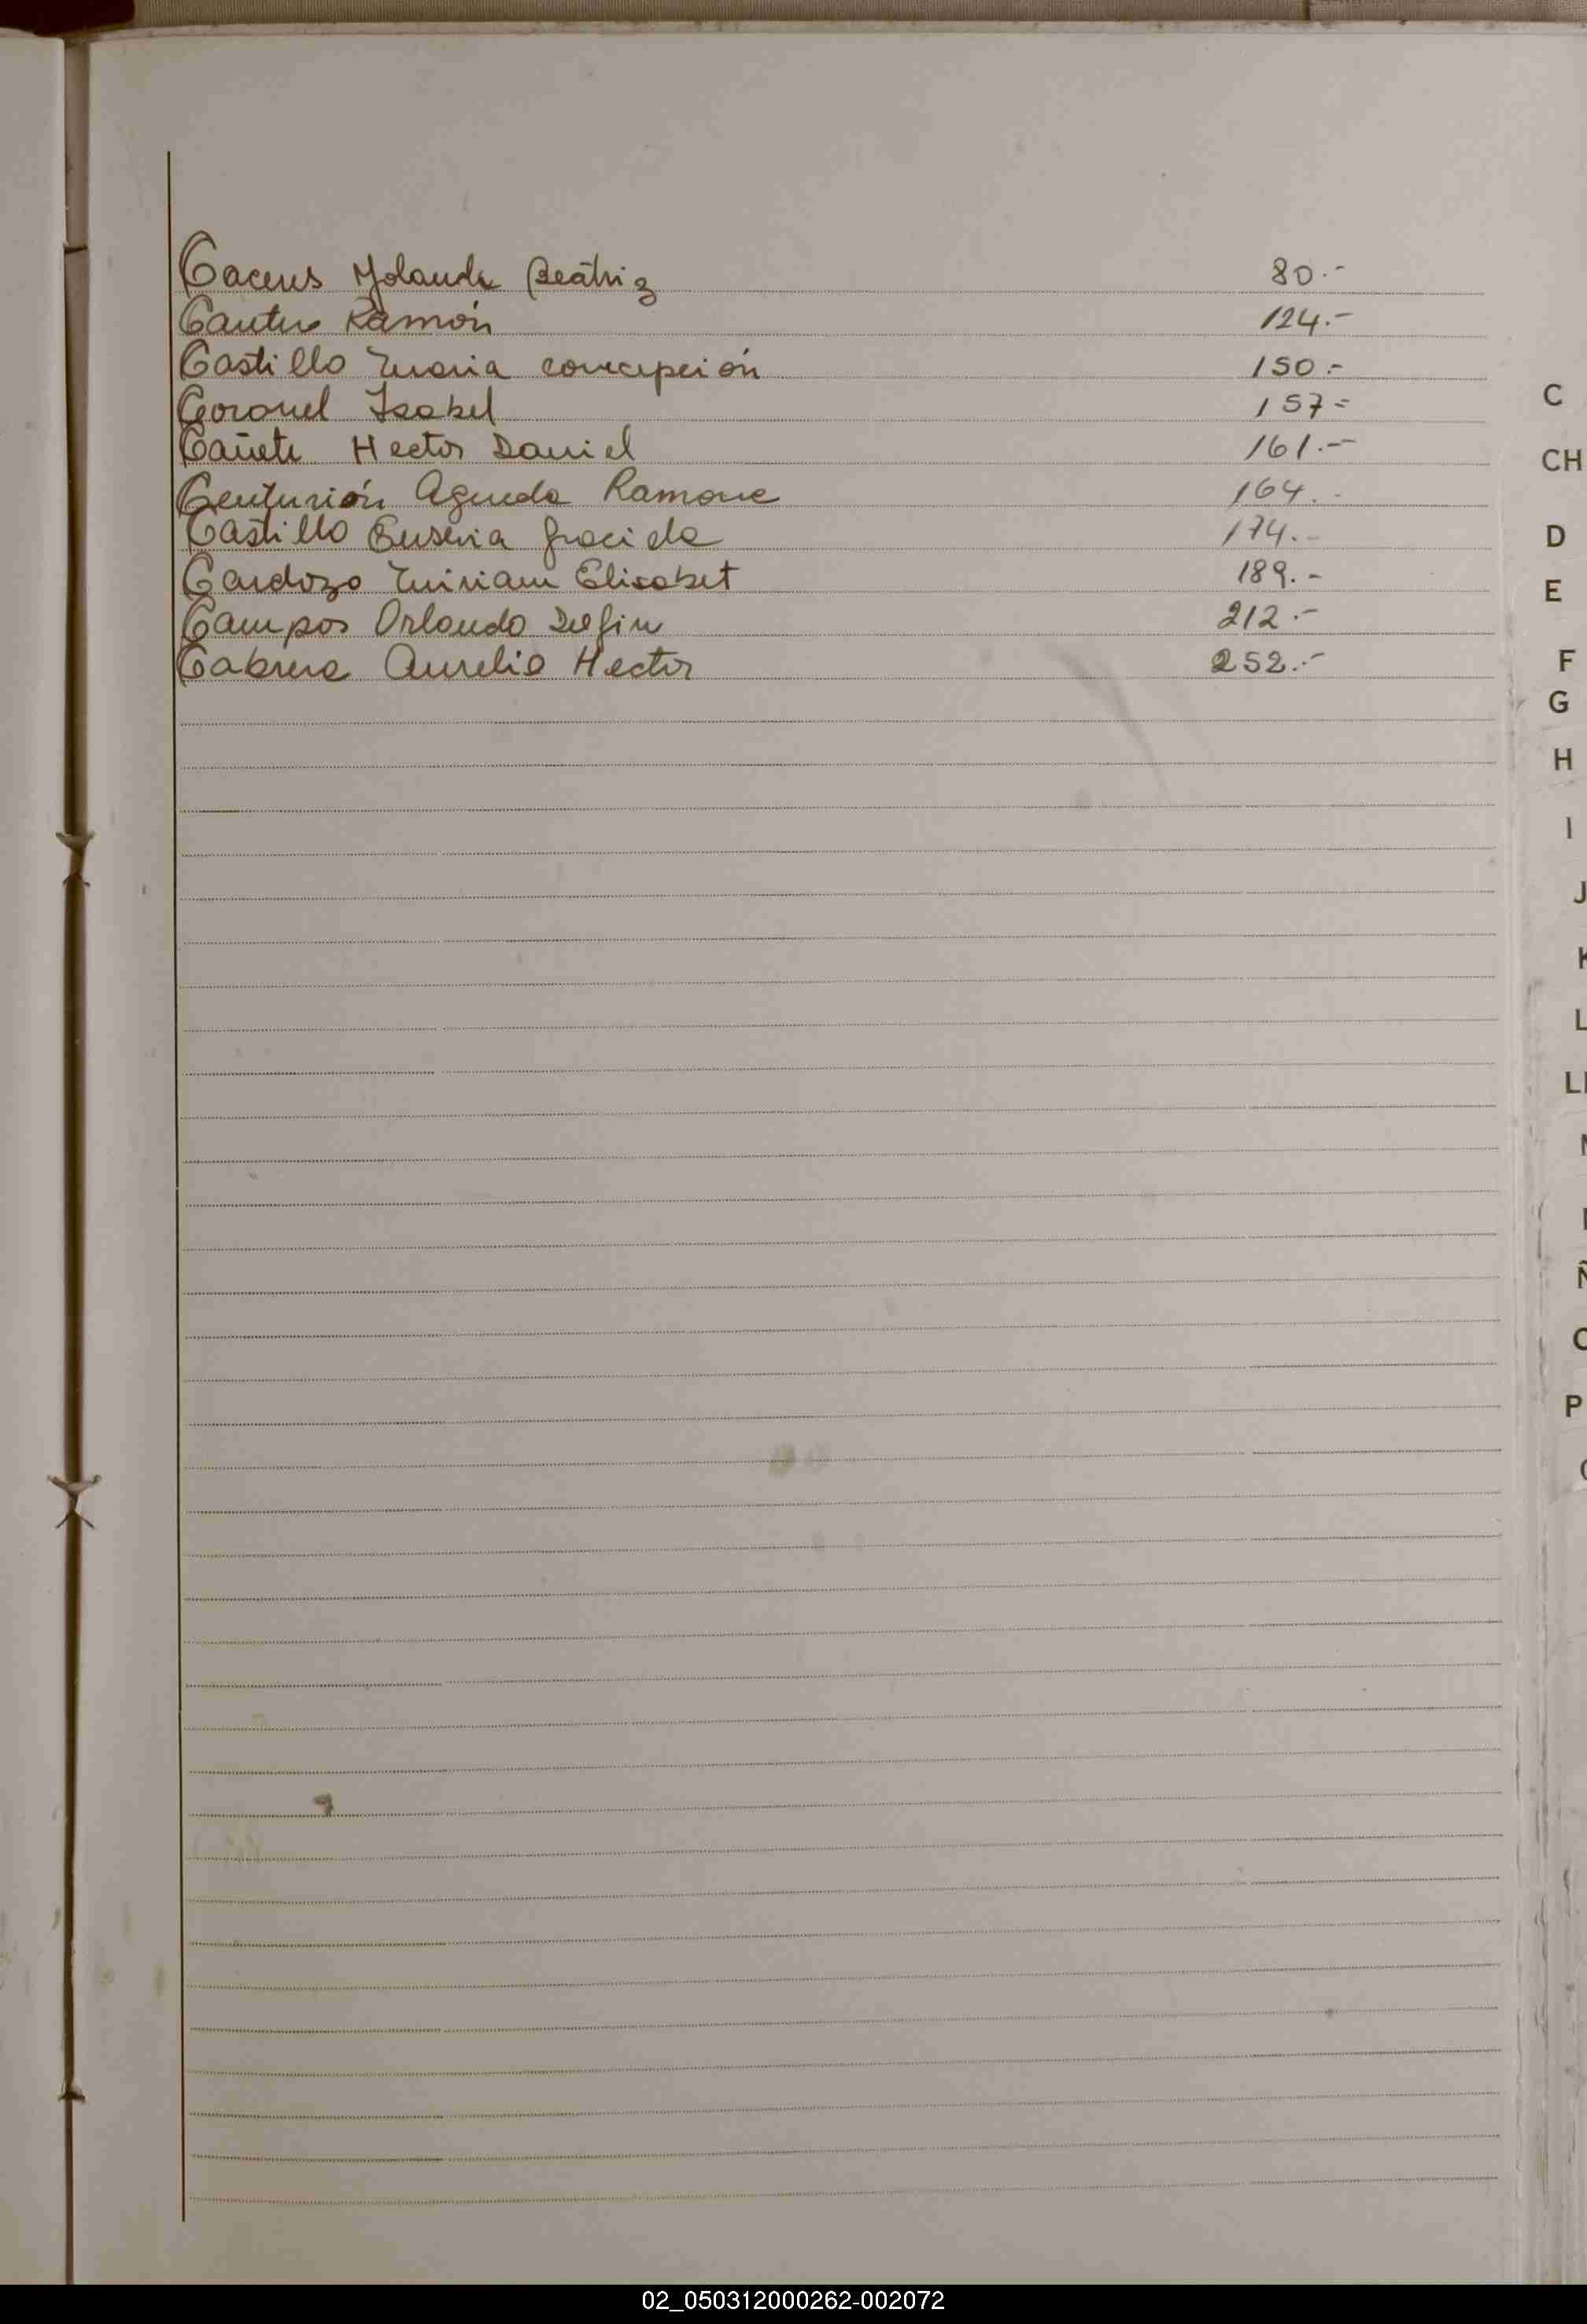 Caceres Yolanda Beatriz 80.-
Cantero Ramón 124.-
Castillo Maria concepción 150.-
Coronel Isabel 157=
Cañete Hector Daniel 161.-
Centurión Agueda Ramona 164.-
Castillo Eusevia Graciela 174.-
Cardozo Miriam Elisabet 189.-
Campos Orlando Delfin 212.-
Cabrera Aurelio Hector 252.-
C
CH
D
E
F
G
H
I
J
K
L
Ñ
P
02_050312000262-002072